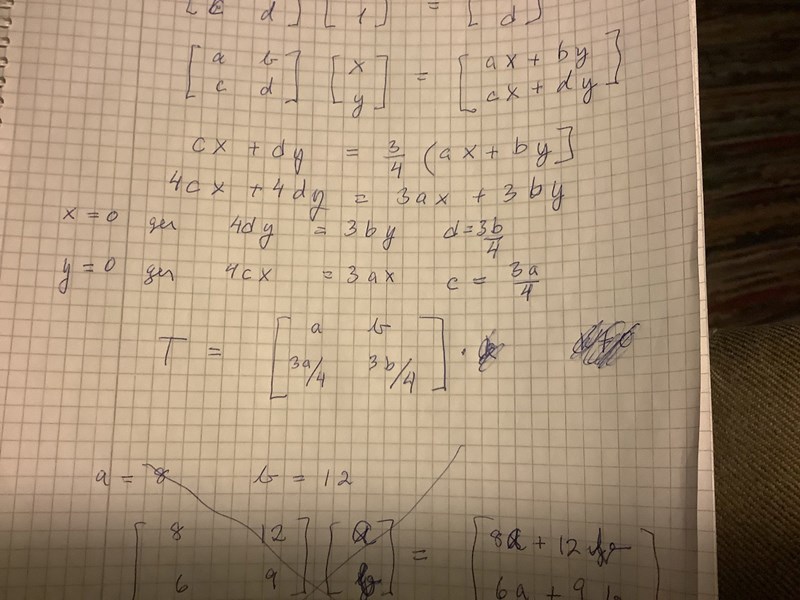 [ c d ] [ 1 ] = [ d ]
[ a b ] [ x ] = [ ax + by ]
[ c d ] [ y ] [ cx + dy ]
cx + dy = 3/4 (ax + by]
4cx + 4dy = 3ax + 3by
x = 0 ger 4dy = 3by d = 3b/4
y = 0 ger 4cx = 3ax c = 3a/4
T = [ a b ]
[ 3a/4 3b/4 ] .
a = 8 b = 12
[ 8 12 ] [ a ] = [ 8a + 12 ]
[ 6 9 ] [ b ] [ 6a + 9b ]